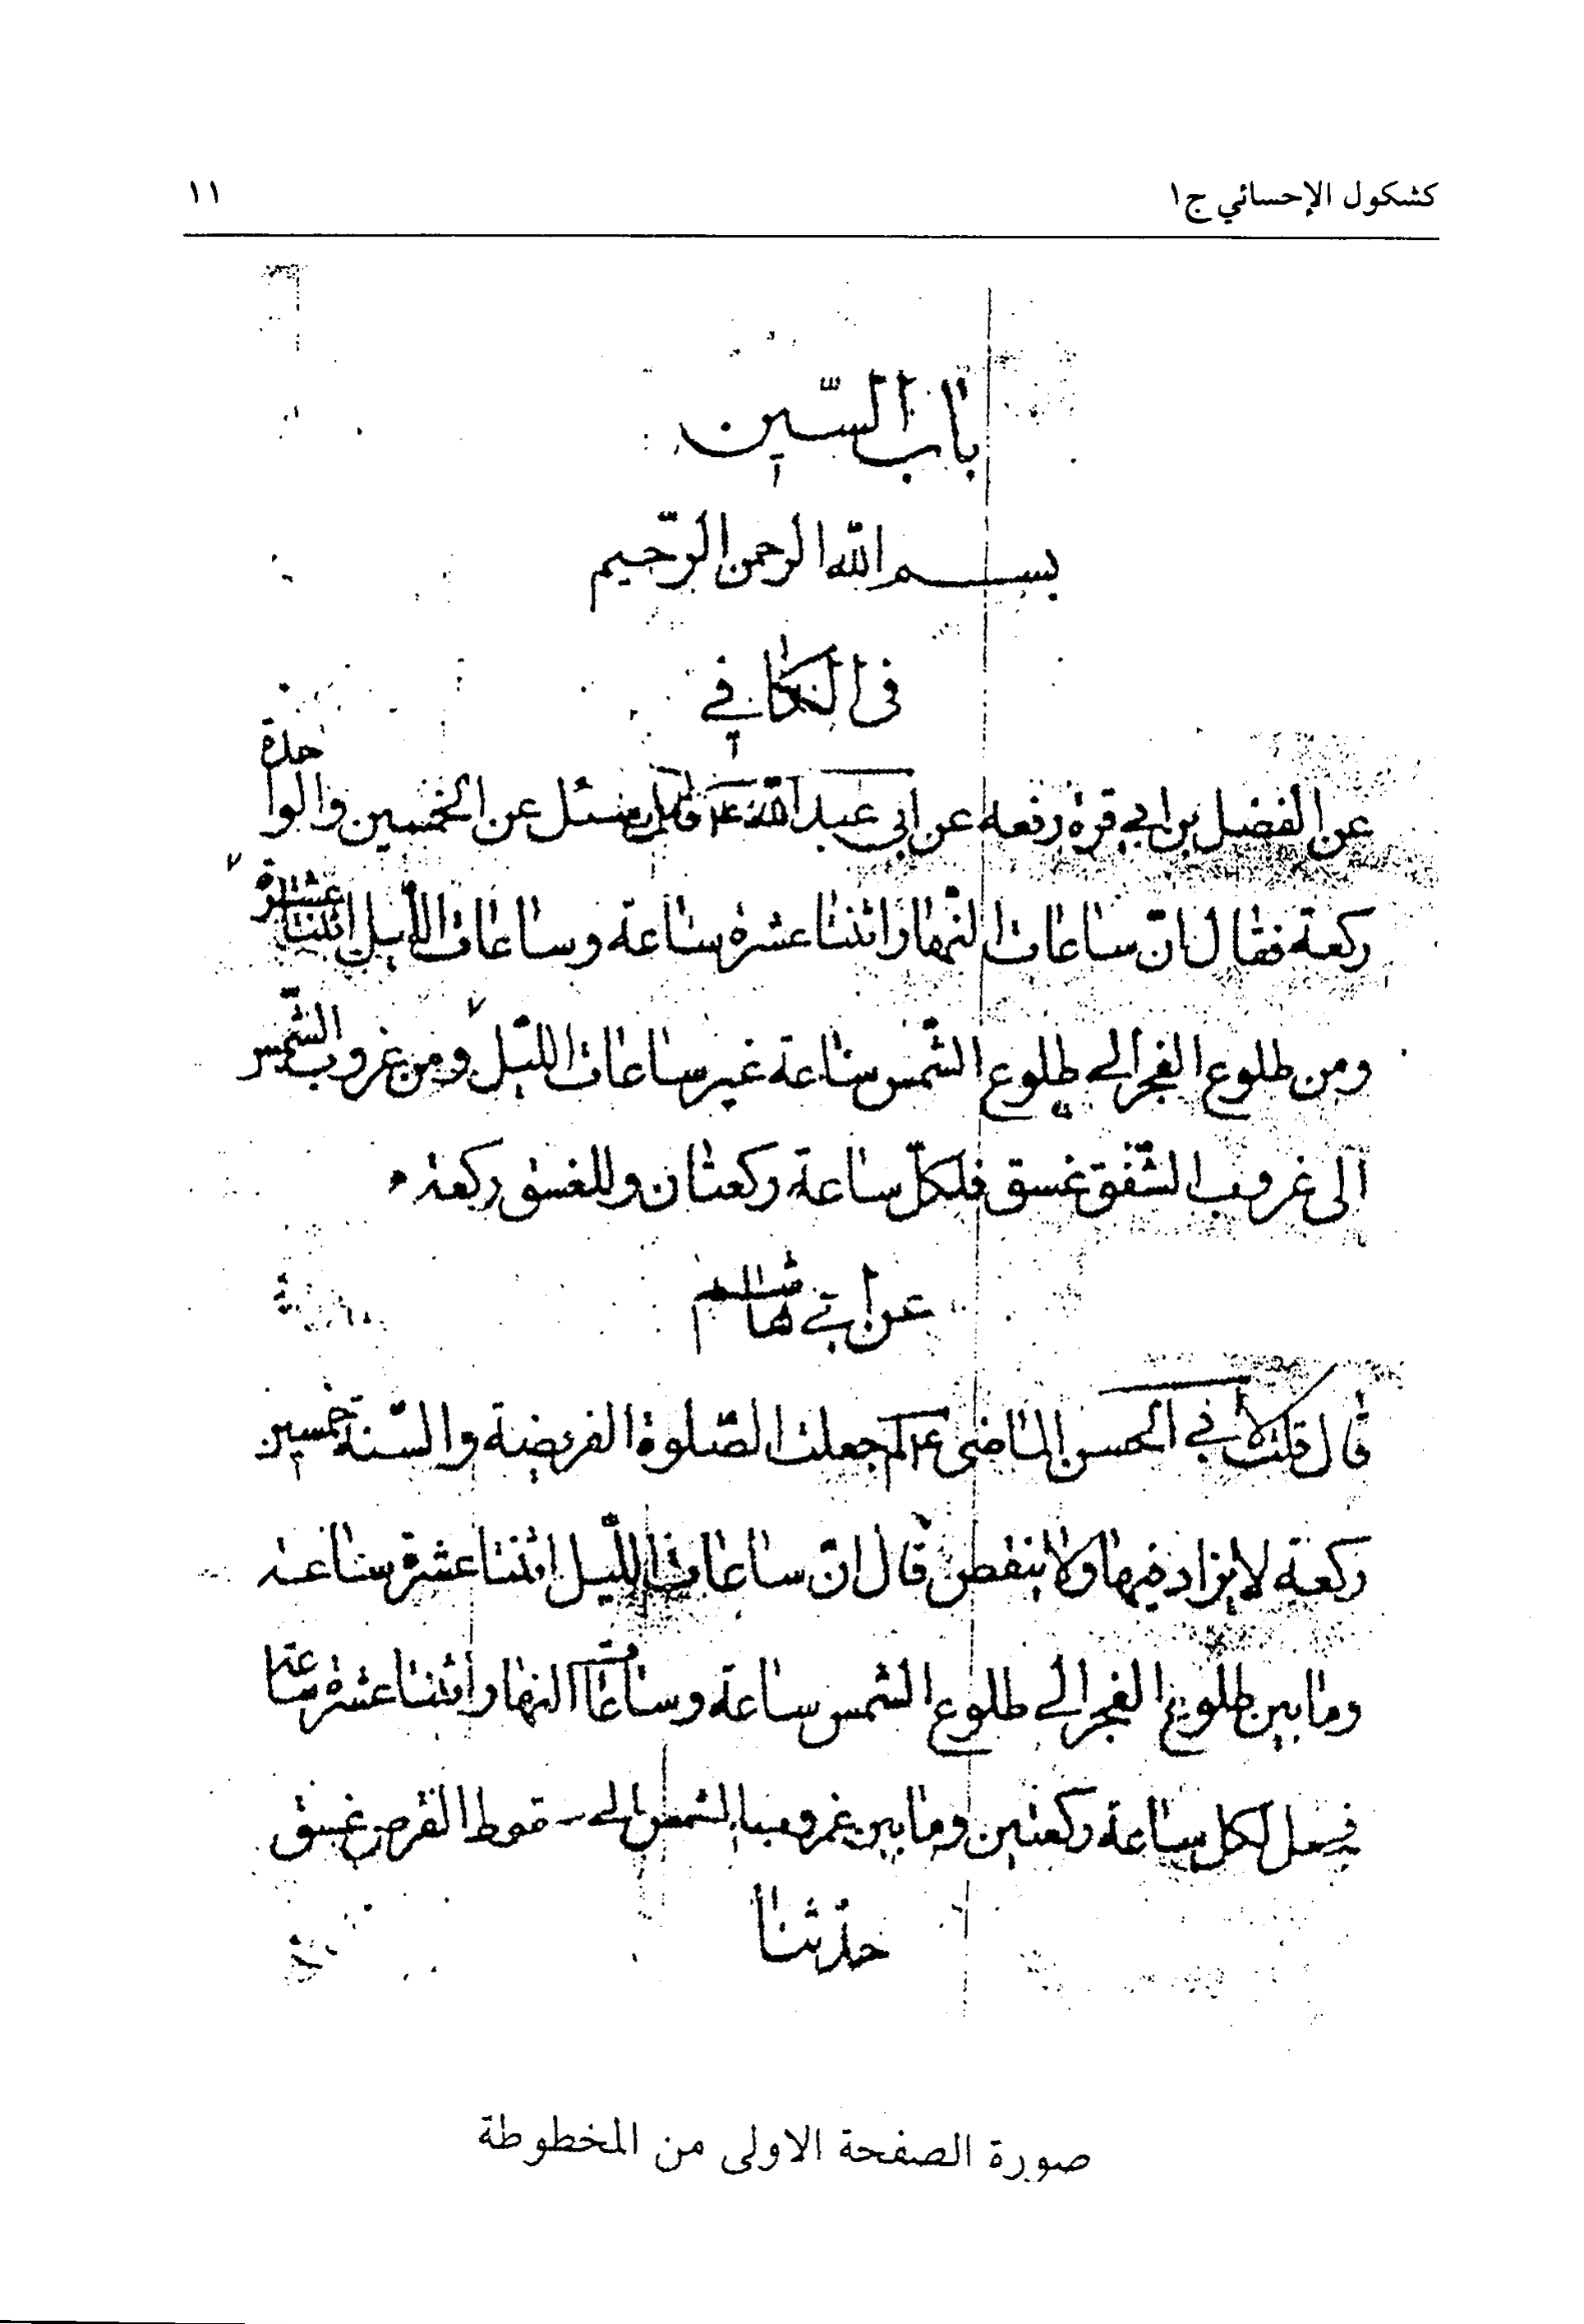 كشكول الإحسائي ج١ ١١
باب السّين
بسم الله الرحمن الرّحيم
فى الكافي
عن الفضل بن ابي قرة رفعه عن ابي عبد الله ع قال سئل عن الخمسين والواحدة
ركعة فقال انّ ساعات النّهار اثنتا عشرة ساعة وساعات اللّيل اثنتا عشرة
ومن طلوع الفجر الى طلوع الشّمس ساعة غير ساعات اللّيل ومن غروب الشّمس
الى غروب الشّفق غسق فلكلّ ساعة ركعتان وللغسق ركعة
عن ابي هاشم
قال قلت لأبي الحسن الماضى ع لم جعلت الصّلوة الفريضة والسّنة خمسين
ركعة لا يزاد فيها ولا ينقص قال انّ ساعات اللّيل اثنتا عشرة ساعة
وما بين طلوع الفجر الى طلوع الشمس ساعة وساعات النهار اثنتا عشرة ساعة
لكل ساعة ركعتين وما بين غروب الشمس الى القرص غسق
حدّثنا
صورة الصفحة الاولى من المخطوطة